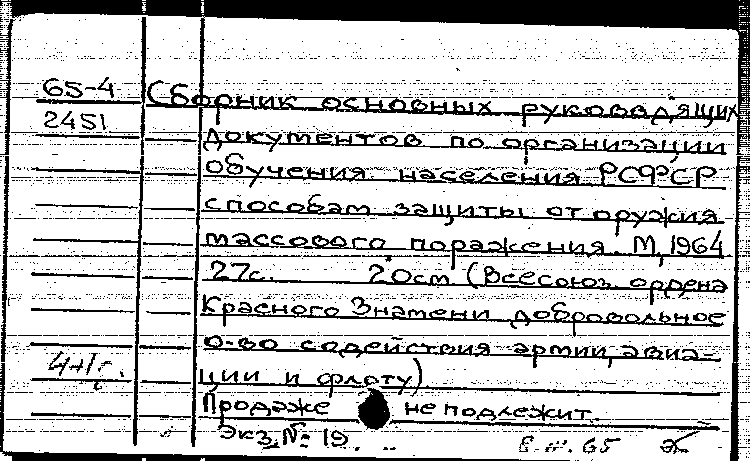 65-4 Сборник основных руководящих
2451 документов по организации
обучения населения РСФСР
способам защиты от оружия
массового поражения. М, 1964
27с. 20см (Всесоюз. ордена
Красного Знамени добровольное
о-во содействия армии, авиа-
ции и флоту)
Продаже не подлежит.
Экз. № 19.
65